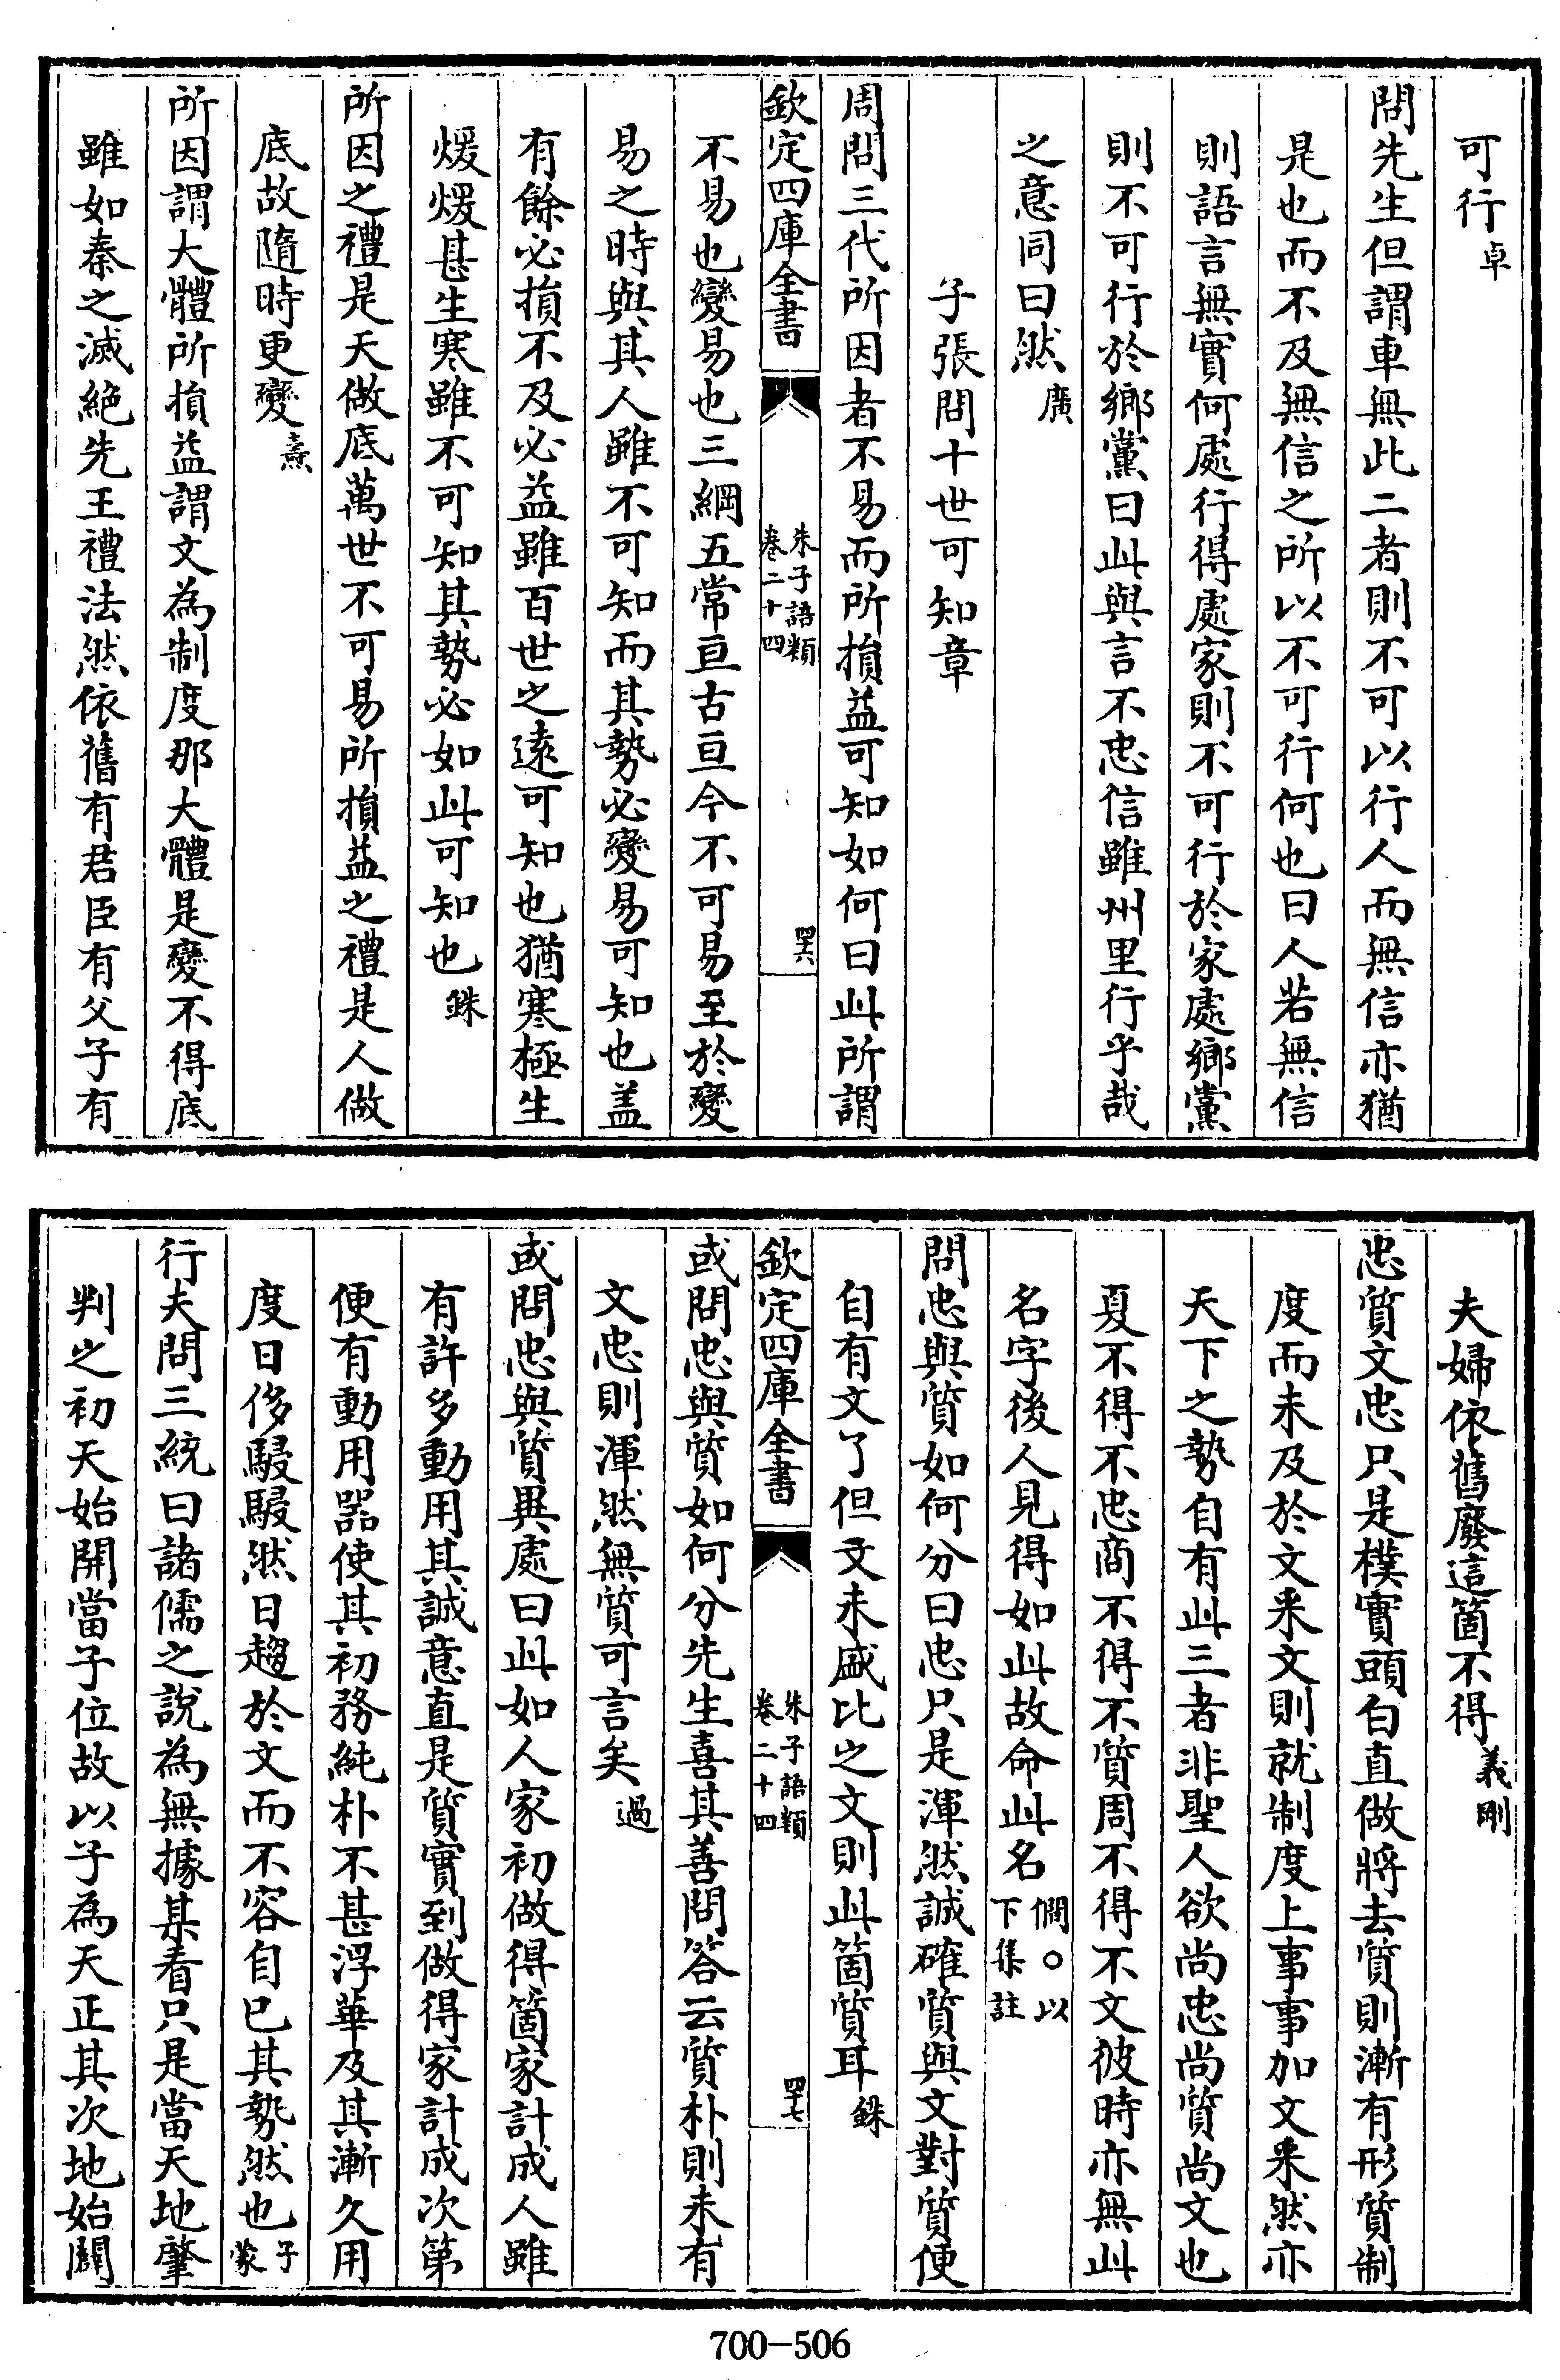 可行卓
問先生但謂車無此二者則不可以行人而無信亦猶
是也而不及無信之所以不可行何也曰人若無信
則語言無實何處行得處家則不可行於家處鄉黨
則不可行於鄉黨曰此與言不忠信雖州里行乎哉
之意同曰然廣
子張問十世可知章
周問三代所因者不易而所損益可知如何曰此所謂
欽定四庫全書
朱子語類
卷二十四
四六
不易也變易也三綱五常亘古亘今不可易至於變
易之時與其人雖不可知而其勢必變易可知也盖
有餘必損不及必益雖百世之遠可知也猶寒極生
煖煖甚生寒雖不可知其勢必如此可知也銖
所因之禮是天做底萬世不可易所損益之禮是人做
底故隨時更變燾
所因謂大體所損益謂文為制度那大體是變不得底
雖如秦之滅絶先王禮法然依舊有君臣有父子有
夫婦依舊廢這箇不得義剛
忠質文忠只是樸實頭白直做將去質則漸有形質制
度而未及於文采文則就制度上事事加文采然亦
天下之勢自有此三者非聖人欲尚忠尚質尚文也
夏不得不忠商不得不質周不得不文彼時亦無此
名字後人見得如此故命此名僩○以
下集註
問忠與質如何分曰忠只是渾然誠確質與文對質便
自有文了但文未盛比之文則此箇質耳銖
欽定四庫全書
朱子語類
卷二十四
四七
或問忠與質如何分先生喜其善問答云質朴則未有
文忠則渾然無質可言矣過
或問忠與質異處曰此如人家初做得箇家計成人雖
有許多動用其誠意直是質實到做得家計成次第
便有動用器使其初務純朴不甚浮華及其漸久用
度日侈駸駸然日趨於文而不容自已其勢然也子
蒙
行夫問三統曰諸儒之說為無據某看只是當天地肇
判之初天始開當子位故以子為天正其次地始闢
700-506